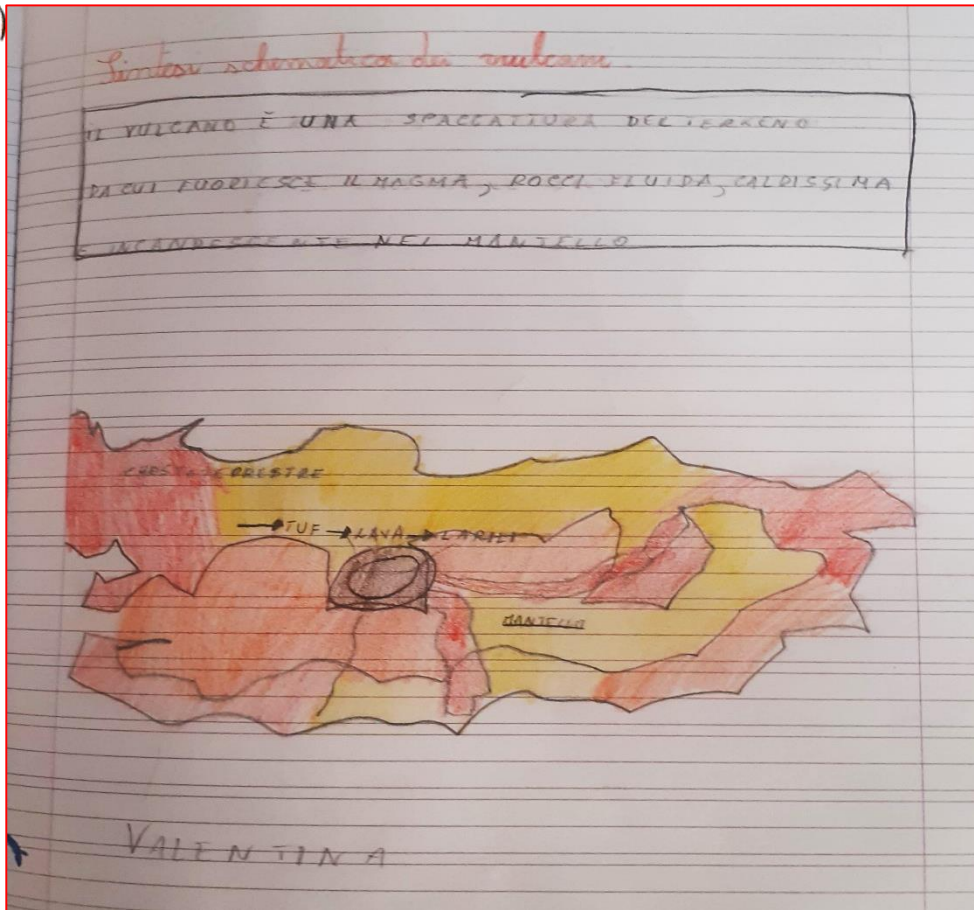 Sintesi schematica dei vulcani
IL VULCANO È UNA SPACCATTURA DEL TERRENO
DA CUI FUORIESCE IL MAGMA, ROCCI FLUIDA, CALDISSIMA
E INCANDESCENTE NEL MANTELLO
CROSTA TERRESTRE
TUF LAVA LAPILLI
MANTELLO
VALENTINA